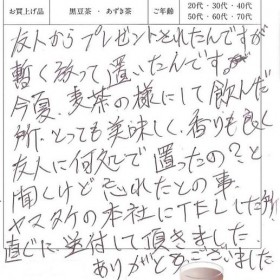 お買上げ品 黒豆茶・あずき茶 ご年齢 20代・30代・40代
50代・60代・70代
友人からプレゼントされたんですが
暫く放って置いたんですが
今夏、麦茶の様にして飲んだ
所、とっても美味しく、香りも良く
友人に何処で買ったの?と
聞くけど忘れたとの事、
ヤマタケの本社にTELした所
直ぐに送付して頂きました
ありがとうございました